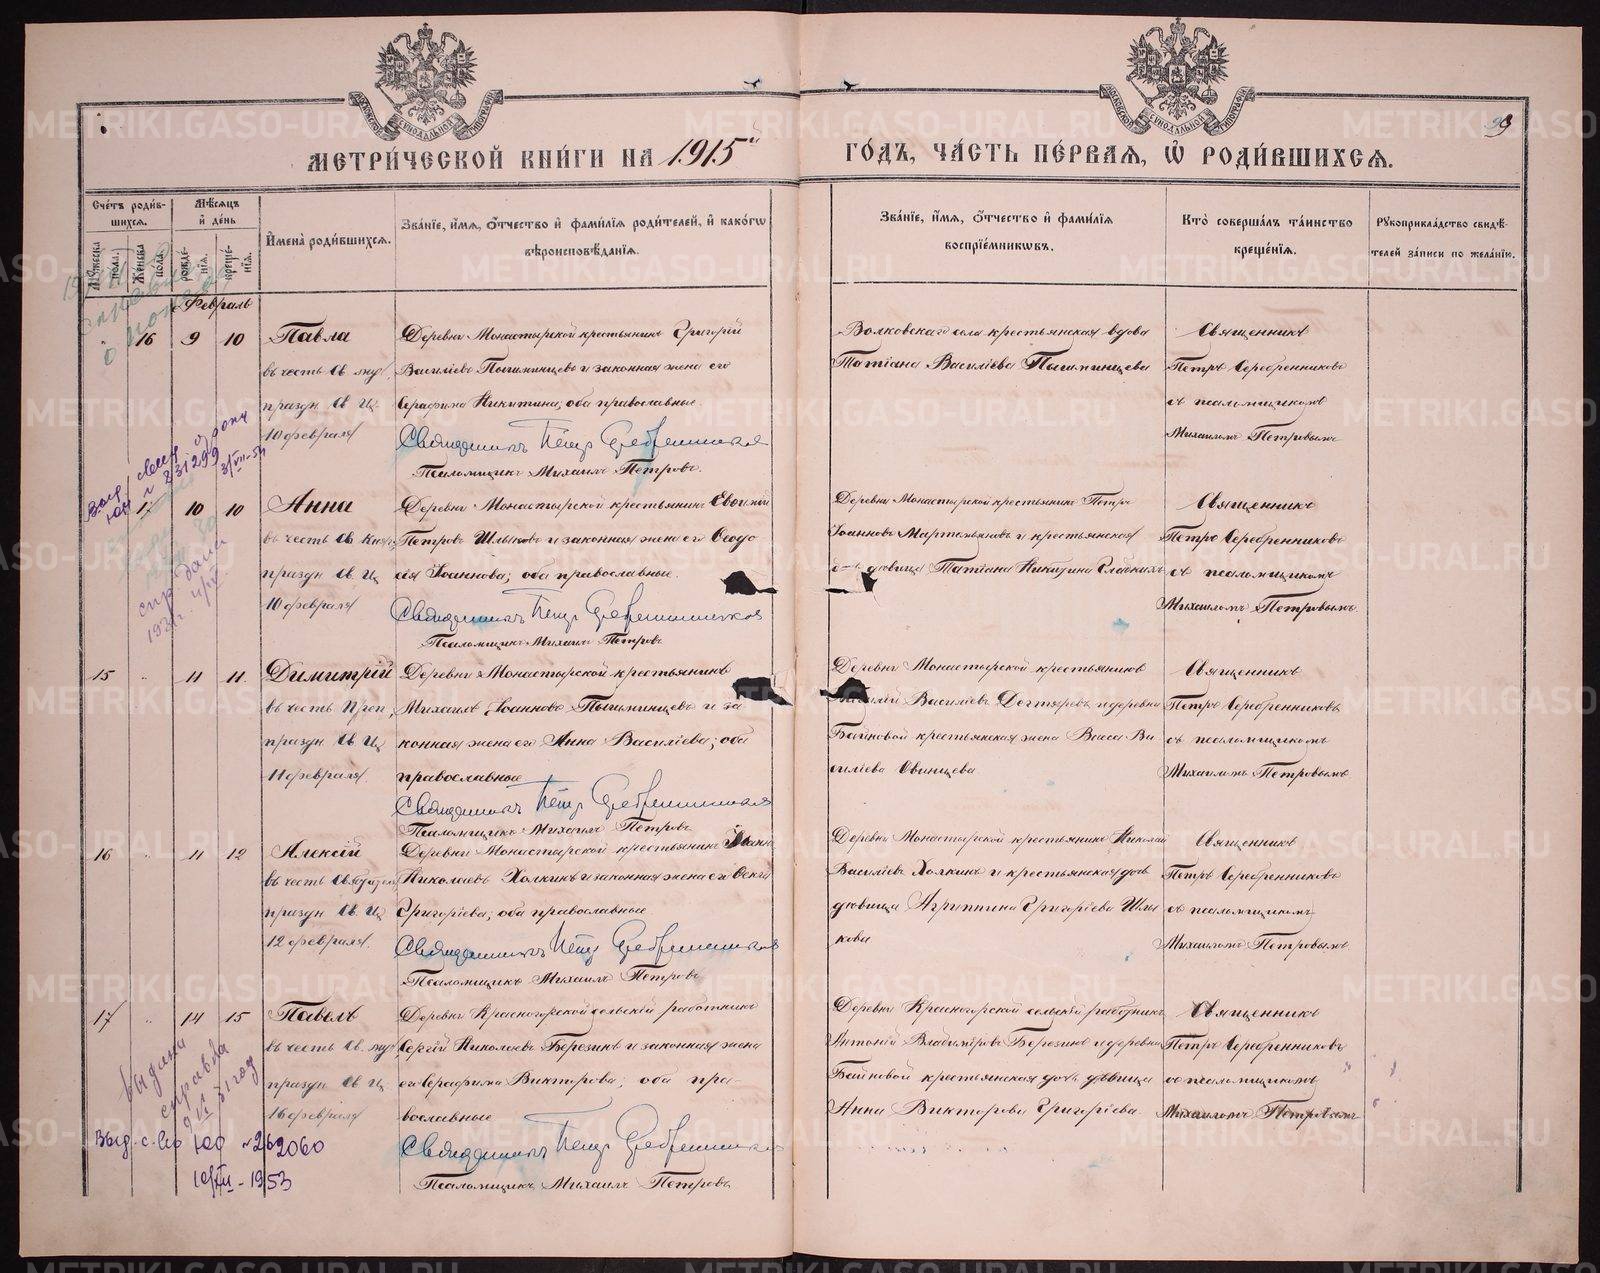 МЕТРИ́ЧЕСКОЙ КНИ́ГИ НА 1915й ГО́ДЪ, ЧА́СТЬ ПЕ́РВАѦ, Ѡ҆ РОДИ́ВШИХСѦ.
Сче́тъ роди́в-
шихсѧ.
Мѣ́сѧцъ
и҆ де́нь
И҆мена̀ роди́вшихсѧ.
Зва́нїе, и҆́мѧ, ѻ҆́тчество и҆ фами́лїѧ роди́телей, и҆ како́гѡ
вѣроисповѣ́данїѧ.
Зва́нїе, и҆́мѧ, ѻ҆́тчество и҆ фами́лїѧ
воспрїе́мникѡвъ.
Кто̀ соверша́лъ та́инство
креще́нїѧ.
Рꙋкоприкла́дство свидѣ́-
телей за́писи по жела́нїю.
Февраль
16 9 10
Павла
въ честь Св. муч.
праздн. Св. Ц.
10 февраля
Деревни Монастырской крестьянинъ Григорій
Василіевъ Пышминцевъ и законная жена его
Серафима Никитина; оба православные.
Священникъ Петръ Серебренниковъ
Псаломщикъ Михаилъ Петровъ.
Волковскаго села крестьянская вдова
Татіана Василіева Пышминцева
Священникъ
Петръ Серебренниковъ
съ псаломщикомъ
Михаиломъ Петровымъ
17 10 10
Анна
праздн. Св. Ц.
10 февраля
Деревни Монастырской крестьянинъ Евѳимій
Петровъ Шлыковъ и законная жена его Ѳеодо
сія Іоаннова; оба православные.
Священникъ Петръ Серебренниковъ
Псаломщикъ Михаилъ Петровъ
Деревни Монастырской крестьянинъ Петръ
Іоанновъ Мартемьяновъ и крестьянская
дѣвица Татіана Никитина
Священникъ
Петръ Серебренниковъ
съ псаломщикомъ
Михаиломъ Петровымъ.
15 11 11
Димитрій
въ честь Преп.
праздн. Св. Ц.
11 февраля.
Деревни Монастырской крестьянинъ
Михаилъ Іоанновъ Пышминцевъ и за
конная жена его Анна Василіева; оба
православные
Священникъ Петръ Серебренниковъ
Псаломщикъ Михаилъ Петровъ
Деревни Монастырской крестьянинъ
Василіевъ Дегтяревъ и деревни
Байновой крестьянская жена Васса Ва
силіева Свинцева
Священникъ
Петръ Серебренниковъ
съ псаломщикомъ
Михаиломъ Петровымъ
16 11 12
Алексій
праздн. Св. Ц.
12 февраля.
Деревни Монастырской крестьянинъ Іоаннъ
Николаевъ Холкинъ и законная жена его
Григоріева; оба православные
Священникъ Петръ Серебренниковъ
Псаломщикъ Михаилъ Петровъ
Деревни Монастырской крестьянинъ Николай
Василіевъ Холкинъ и крестьянская дочь
дѣвица Агриппина Григоріева Шлы
кова
Священникъ
Петръ Серебренниковъ
съ псаломщикомъ
Михаиломъ Петровымъ
17 14 15
Павелъ
въ честь Св. муч.
праздн. Св. Ц.
16 февраля
Деревни Красногорской сельскій работникъ
Сергій Николаевъ Березинъ и законная жена
его Серафима Викторова; оба пра-
вославные
Священникъ Петръ Серебренниковъ
Псаломщикъ Михаилъ Петровъ
Деревни Красногорской сельскій работникъ
Антоній Владиміровъ Березинъ и деревни
Байновой крестьянская дочь дѣвица
Анна Викторова Григоріева
Священникъ
Петръ Серебренниковъ
со псаломщикомъ
Михаиломъ Петровымъ
Выдана
справка
Выд. с-во ЮО № 262060